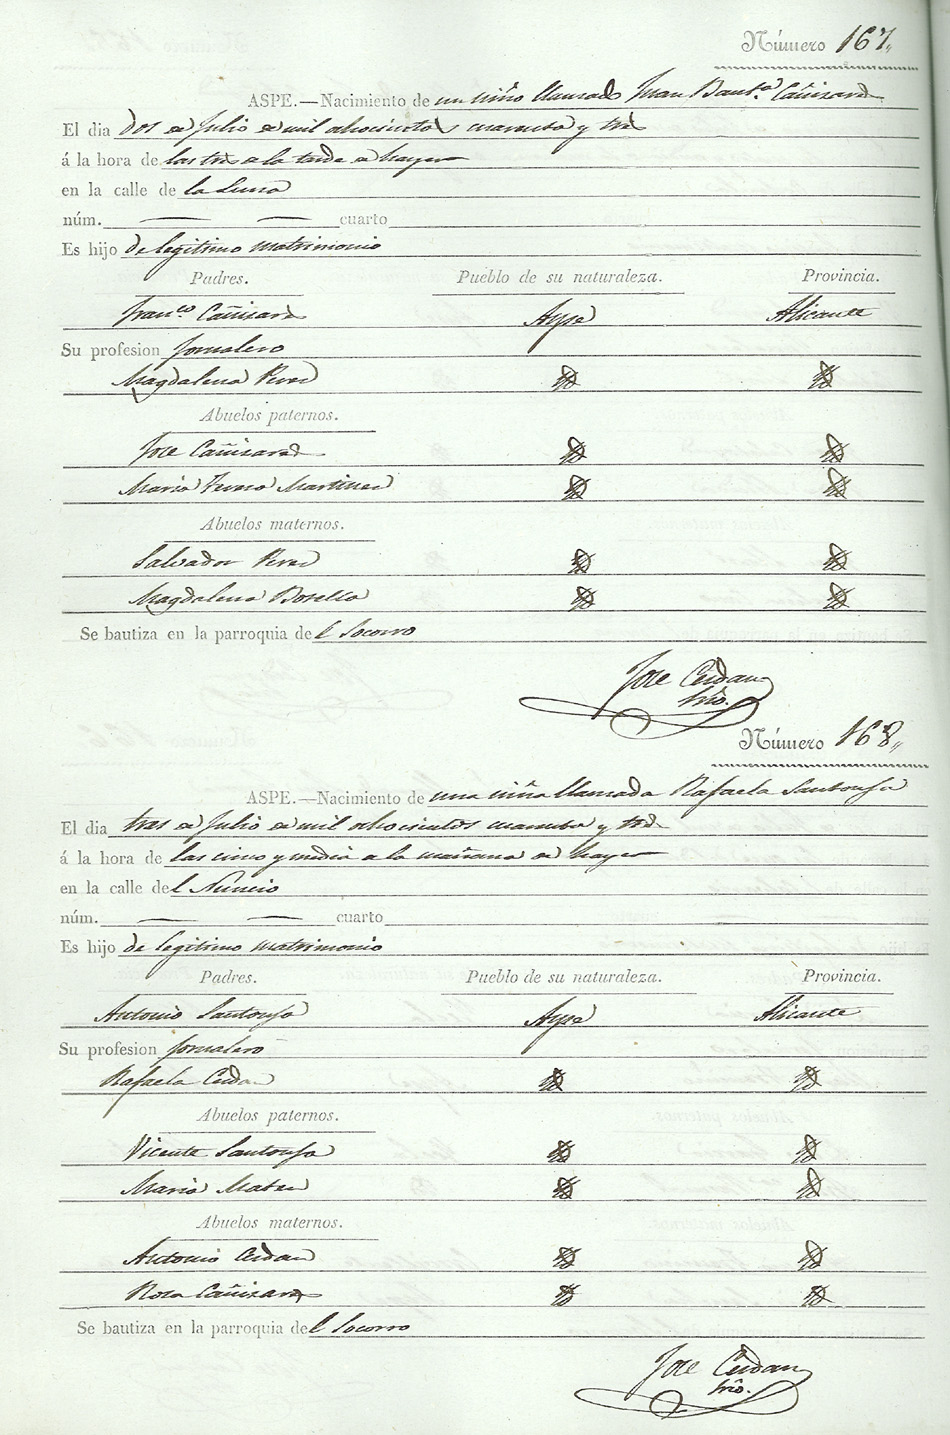 Número 167,,
ASPE.—Nacimiento de un niño llamado Juan Baut.ª Cañizares
El dia dos de Julio de mil ochocientos cuarenta y tres
á la hora de las tres de la tarde de hayer
en la calle de la Luna
núm. — — cuarto
Es hijo de legitimo matrimonio
Padres. Pueblo de su naturaleza. Provincia.
Fran.co Cañizares Aspe Alicante
Su profesion Jornalero
Magdalena Perez
Abuelos paternos.
Jose Cañizares
Maria Teresa Martinez
Abuelos maternos.
Salvador Perez
Magdalena Botella
Se bautiza en la parroquia del Socorro
Jose Cerdan
Srio.
Número 168,,
ASPE.—Nacimiento de una niña llamada Rafaela Santonja
El dia tres de Julio de mil ochocientos cuarenta y tres
á la hora de las cinco y media de la mañana de hayer
en la calle del Nuncio
núm. — — cuarto
Es hijo de legitimo matrimonio
Padres. Pueblo de su naturaleza. Provincia.
Antonio Santonja Aspe Alicante
Su profesion Jornalero
Rafaela Cerdan
Abuelos paternos.
Vicente Santonja
Maria Mateu
Abuelos maternos.
Antonio Cerdan
Rosa Cañizares
Se bautiza en la parroquia del Socorro
Jose Cerdan
Srio.